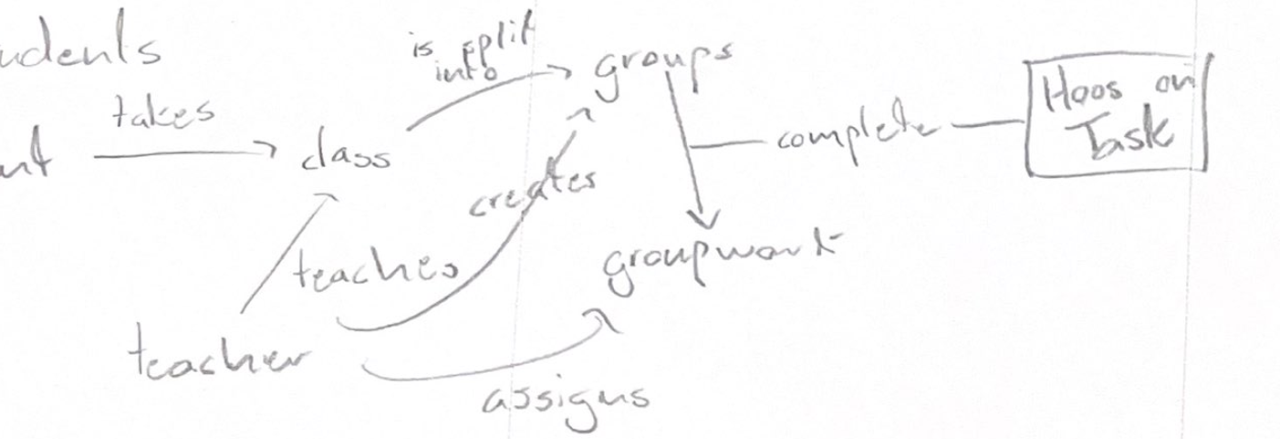 udents
takes
nt
class
is split
into
groups
complete
Hoos on
Task
creates
teaches
groupwork
teacher
assigns